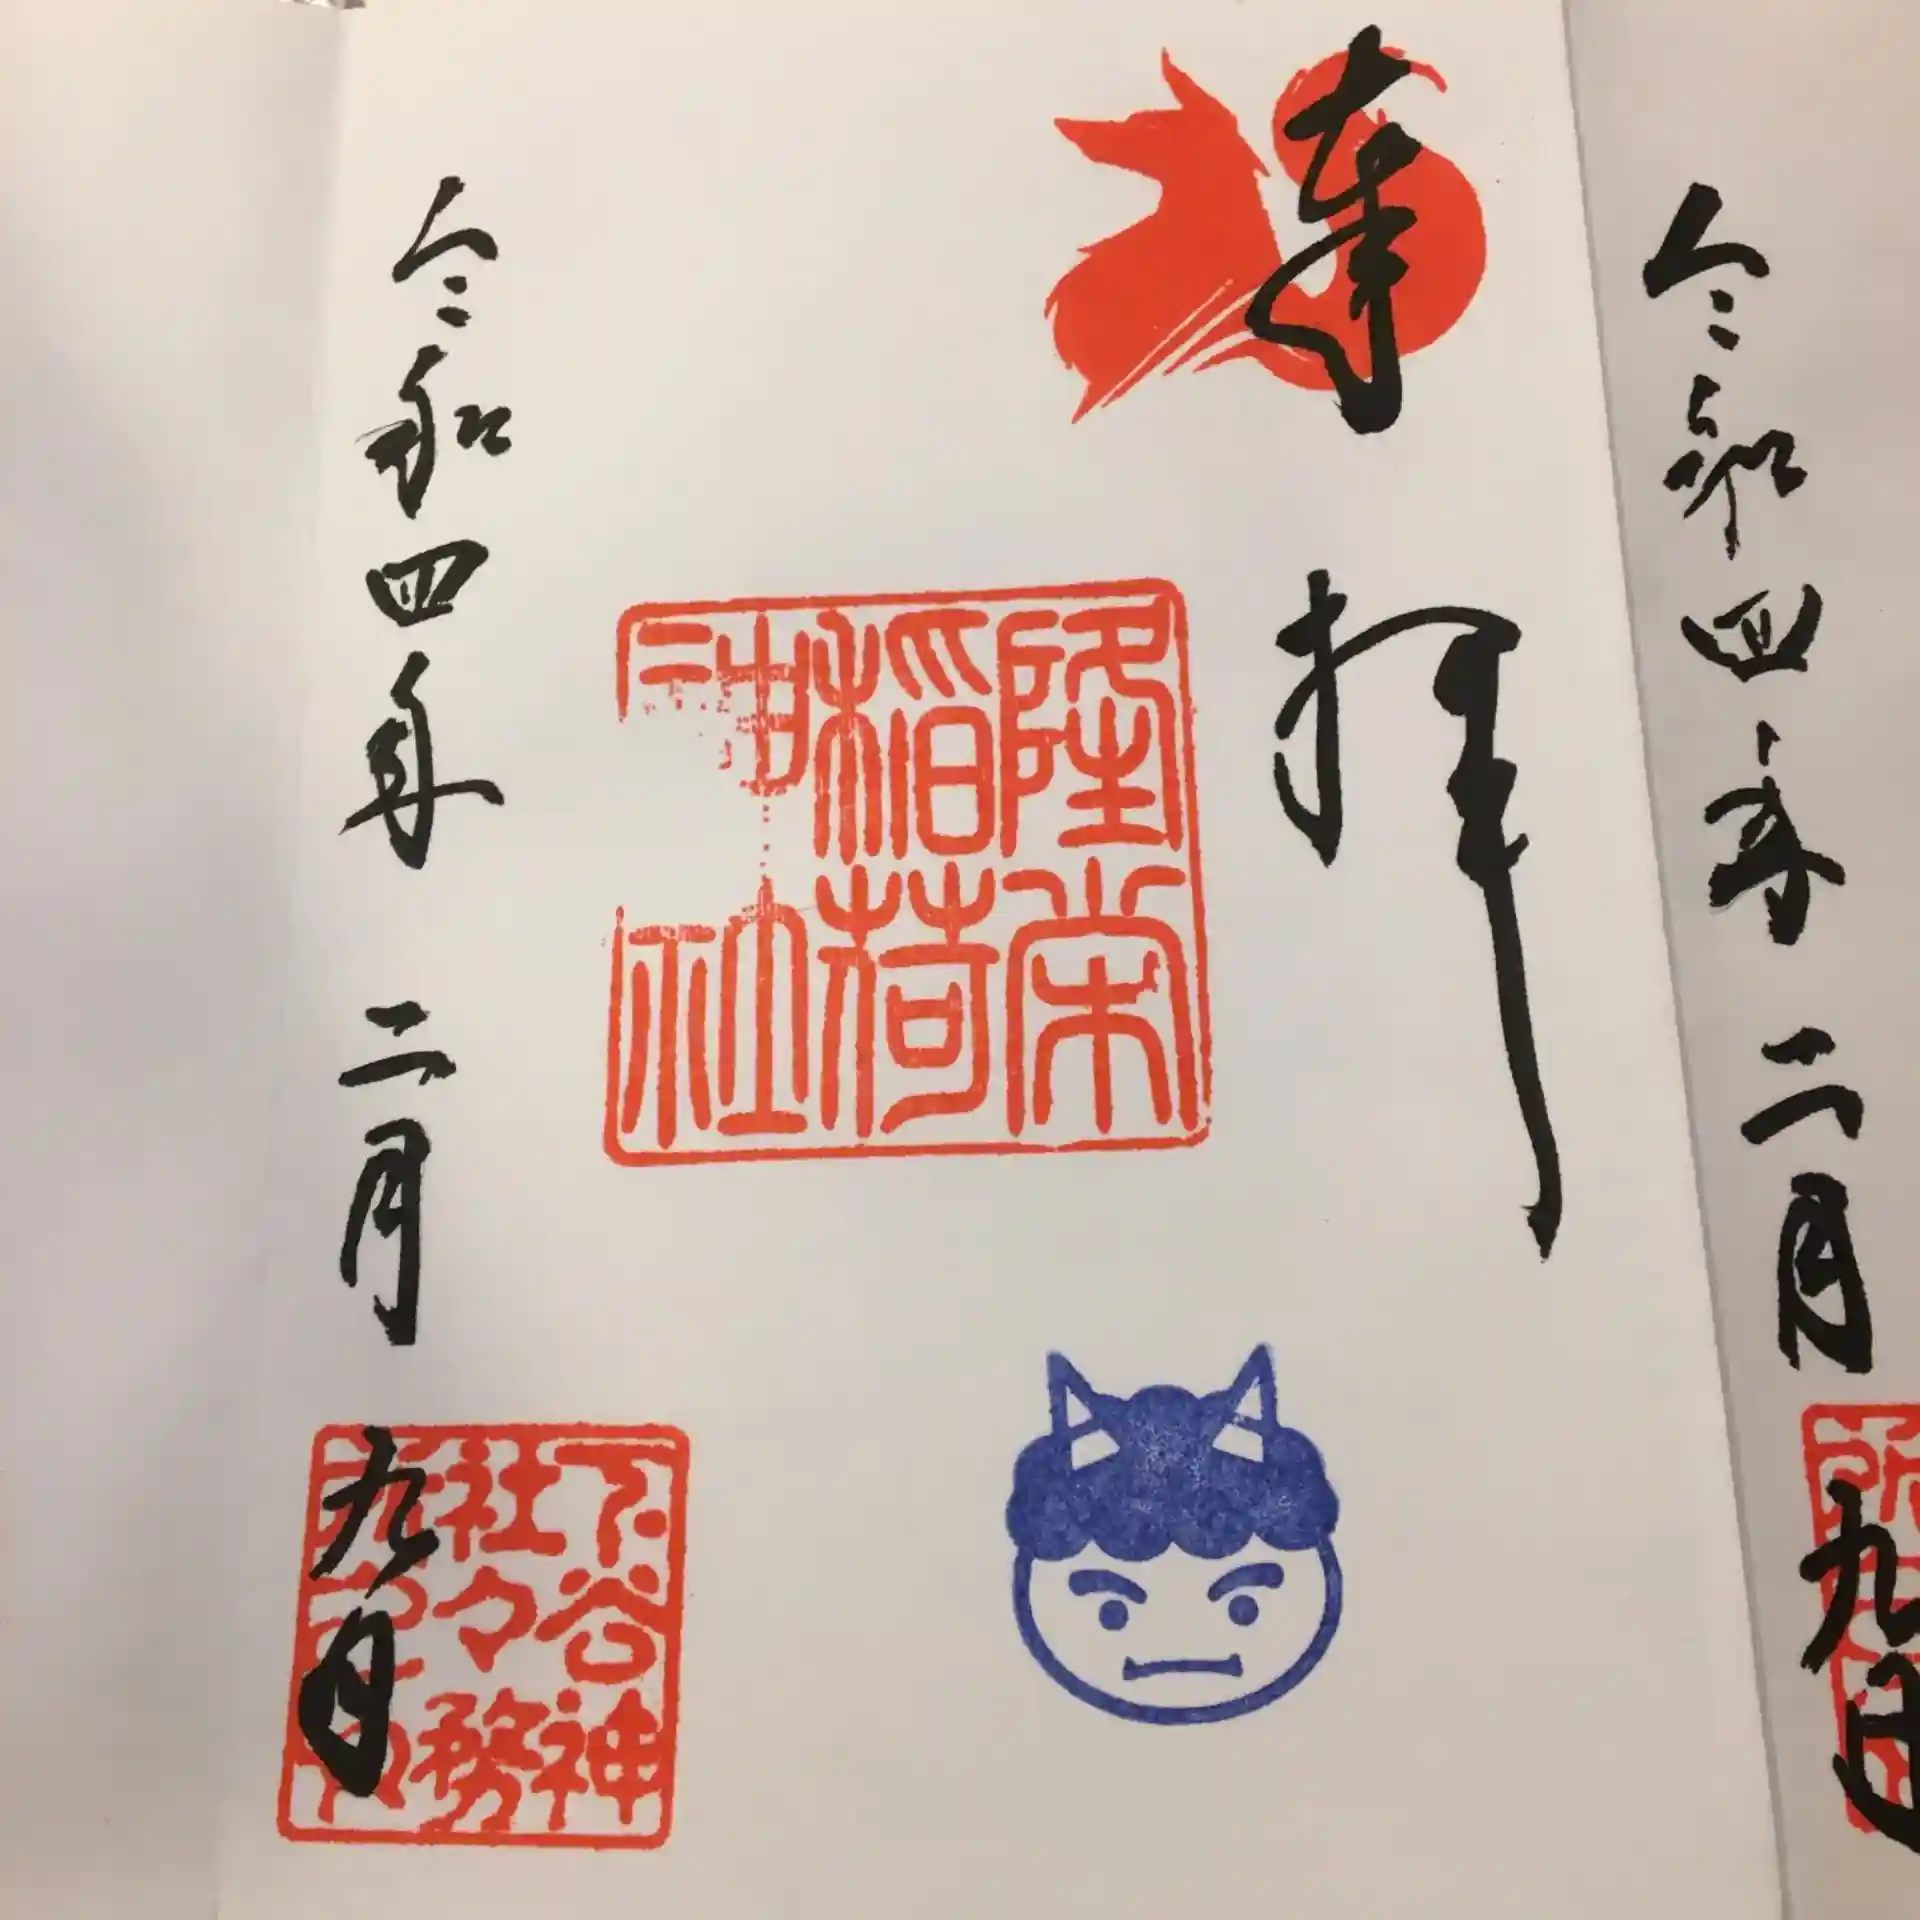 令和四年 二月 九日
奉拝
隆栄
稲荷
神社
令和四年 二月 九日
下谷神
社々務
所之印